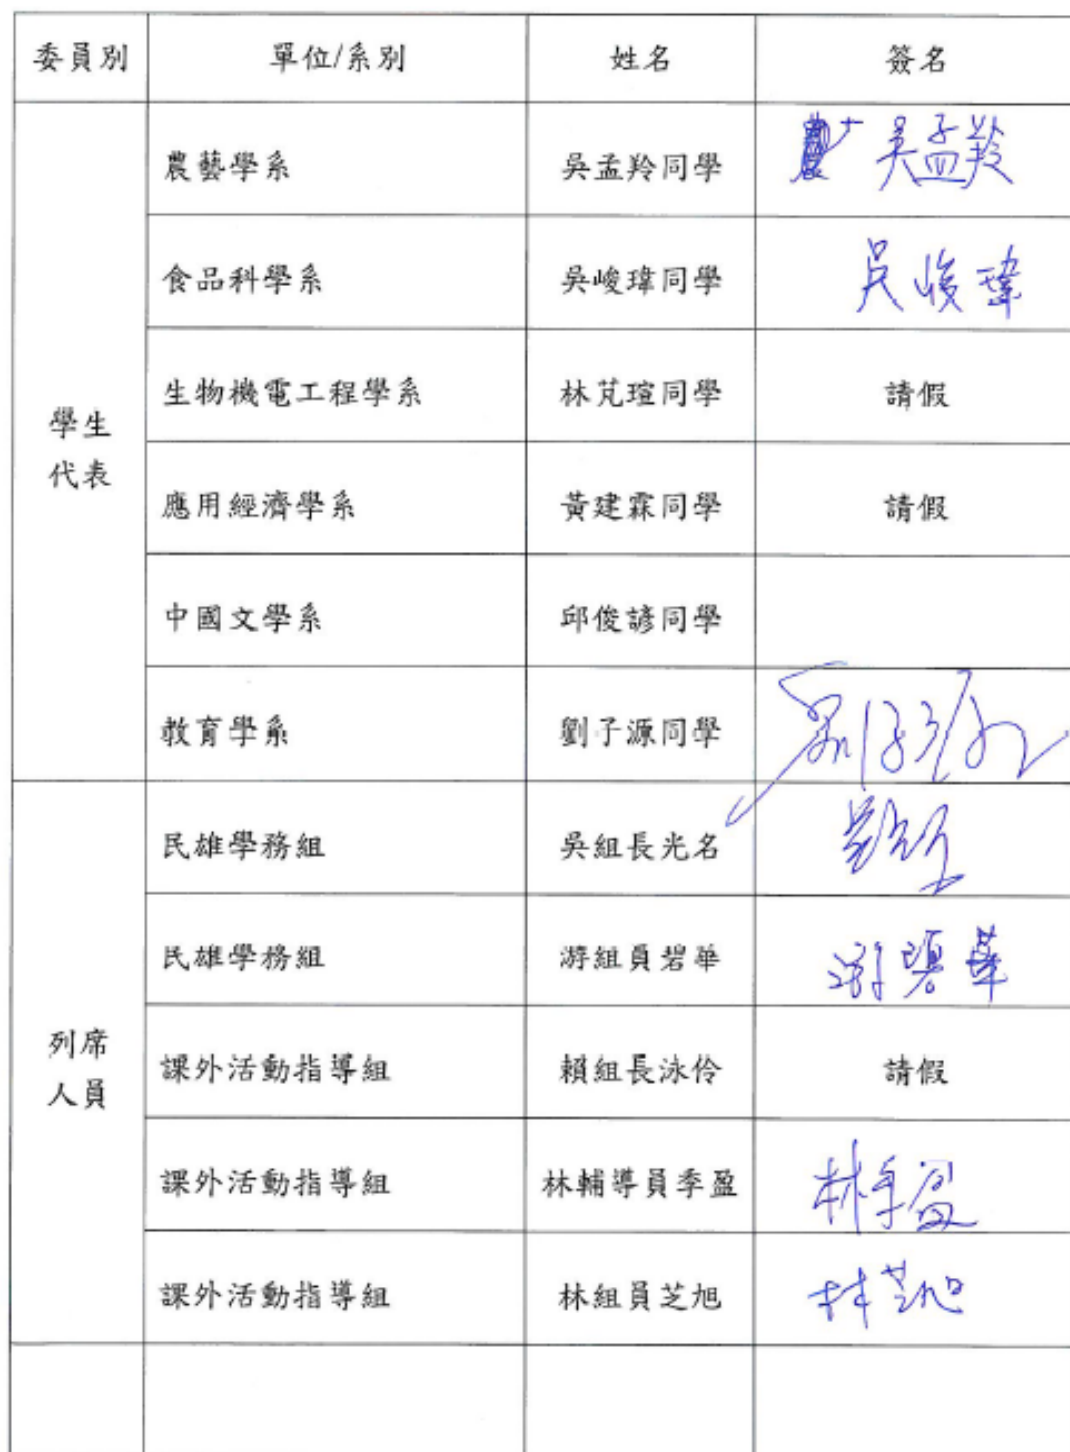 委員別 單位/系別 姓名 簽名
農藝學系 吳孟羚同學 吳孟羚
食品科學系 吳峻瑋同學 吳峻瑋
生物機電工程學系 林芃瑄同學 請假
學生
代表
應用經濟學系 黃建霖同學 請假
中國文學系 邱俊諺同學
教育學系 劉子源同學
民雄學務組 吳組長光名
民雄學務組 游組員碧華 游碧華
列席
人員
課外活動指導組 賴組長泳伶 請假
課外活動指導組 林輔導員季盈 林季盈
課外活動指導組 林組員芝旭 林芝旭